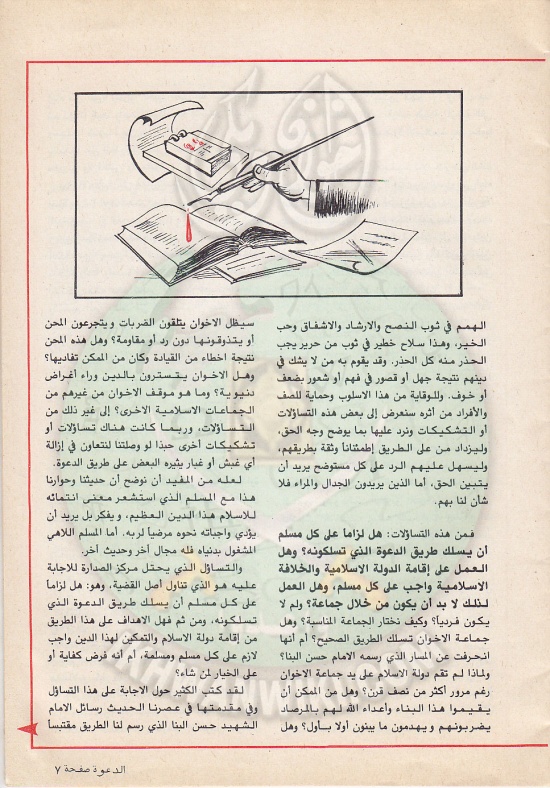 الهمم في ثوب النصح والارشاد والاشفاق وحب
الخير، وهذا سلاح خطير في ثوب من حرير يجب
الحذر منه كل الحذر. وقد يقوم به من لا يشك في
دينهم نتيجة جهل أو قصور في فهم أو شعور بضعف
أو خوف. وللوقاية من هذا الاسلوب وحماية للصف
والأفراد من أثره سنعرض إلى بعض هذه التساؤلات
أو التشكيكات ونرد عليها بما يوضح وجه الحق،
وليزداد من على الطريق إطمئناناً وثقة بطريقهم،
وليسهل عليهم الرد على كل مستوضح يريد أن
يتبين الحق، أما الذين يريدون الجدال والمراء فلا
شأن لنا بهم.
فمن هذه التساؤلات: هل لزاماً على كل مسلم
أن يسلك طريق الدعوة الذي تسلكونه؟ وهل
العمل على إقامة الدولة الاسلامية والخلافة
الاسلامية واجب على كل مسلم، وهل العمل
لذلك لا بد أن يكون من خلال جماعة؟ ولم لا
يكون فردياً؟ وكيف نختار الجماعة المناسبة؟ وهل
جماعة الاخوان تسلك الطريق الصحيح؟ أم أنها
انحرفت عن المسار الذي رسمه الامام حسن البنا؟
ولماذا لم تقم دولة الاسلام على يد جماعة الاخوان
رغم مرور أكثر من نصف قرن؟ وهل من الممكن أن
يقيموا هذا البناء وأعداء الله لهم بالمرصاد
يضربونهم ويهدمون ما يبنون أولا بأول؟ وهل
سيظل الاخوان يتلقون الضربات ويتجرعون المحن
أو يتذوقونها دون رد أو مقاومة؟ وهل هذه المحن
نتيجة اخطاء من القيادة وكان من الممكن تفاديها؟
وهل الاخوان يتسترون بالدين وراء أغراض
دنيوية؟ وما هو موقف الاخوان من غيرهم من
الجماعات الاسلامية الاخرى؟ إلى غير ذلك من
التساؤلات، وربما كانت هناك تساؤلات أو
تشكيكات أخرى حبذا لو وصلتنا لنتعاون في إزالة
أي غبش أو غبار يثيره البعض على طريق الدعوة.
لعله من المفيد أن نوضح أن حديثنا وحوارنا
هذا مع المسلم الذي استشعر معنى انتمائه
للاسلام هذا الدين العظيم، ويفكر بل يريد أن
يؤدي واجباته نحوه مرضياً لربه. أما المسلم اللاهي
المشغول بدنياه فله مجال آخر وحديث آخر.
والتساؤل الذي يحتل مركز الصدارة للاجابة
عليه هو الذي تناول أصل القضية، وهو: هل لزاماً
على كل مسلم أن يسلك طريق الدعوة الذي
تسلكونه، ومن ثم فهل الاهداف على هذا الطريق
من إقامة دولة الاسلام والتمكين لهذا الدين واجب
لازم على كل مسلم ومسلمة، أم أنه فرض كفاية أو
على الخيار لمن شاء؟
لقد كتب الكثير حول الاجابة على هذا التساؤل
وفي مقدمتها في عصرنا الحديث رسائل الامام
الشهيد حسن البنا الذي رسم لنا الطريق مقتبساً
الدعوة صفحة ٧